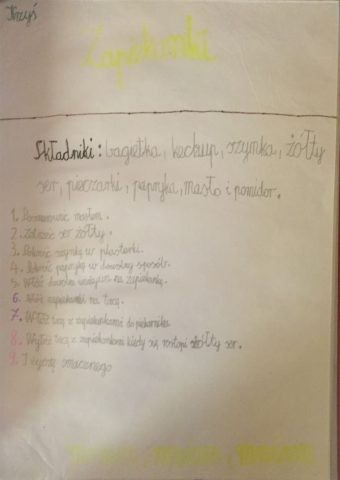 Krzyś
Zapiekanki
Składniki: bagietka, keckup, szynka, żółty
ser, pieczarki, papryka, masło i pomidor.
1. Posmarować masłem.
2. ser żółty.
3. Pokroić szynkę w plasterki.
4. Pokroić paprykę w dowolny sposób.
5. Włóż warzywa na zapiekankę.
6. Włóż zapiekanki na tacę.
7. Włóż tacę z zapiekankami do piekarnika
8. Wyłóż tacę z zapiekankami kiedy się roztopi żółty ser.
9. I życzę smacznego
mniam, mniam, mniam